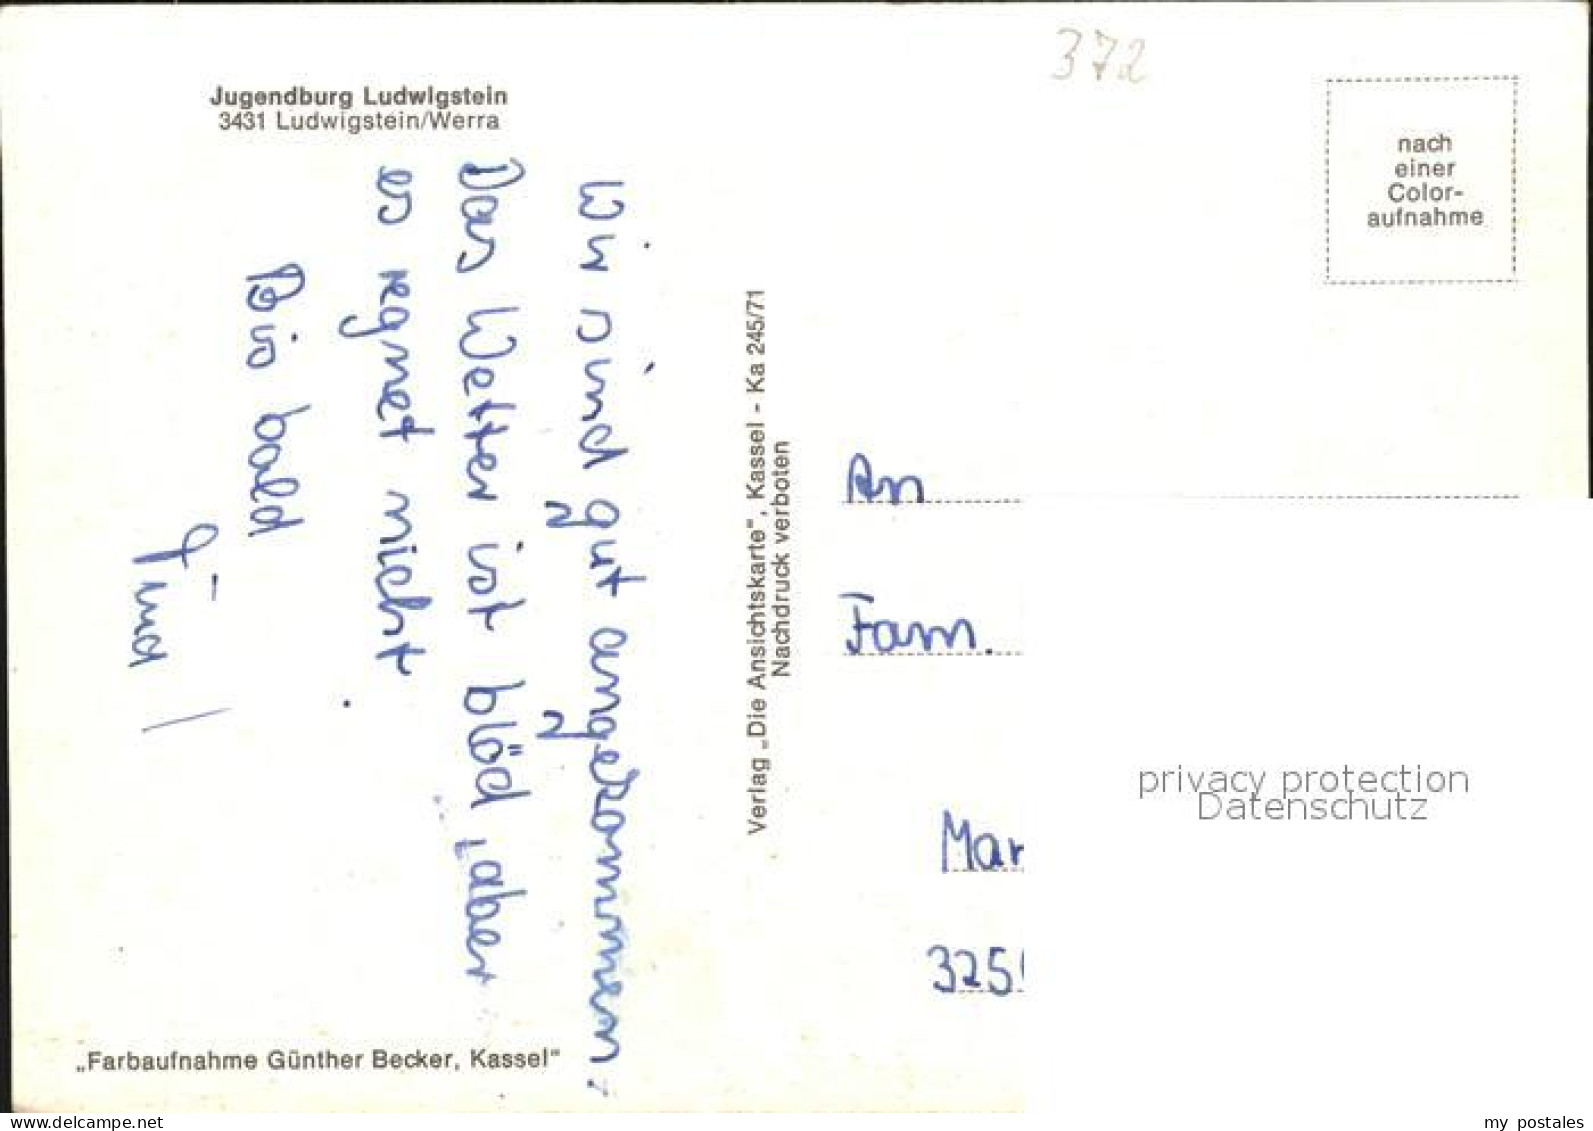 372
Jugendburg Ludwigstein
3431 Ludwigstein/Werra
nach
einer
Color-
aufnahme
Wir sind gut angekommen.
Das Wetter ist blöd, aber
es regnet nicht.
Bis bald
Verlag „Die Ansichtskarte", Kassel - Ka 245/71
Nachdruck verboten
An
Fam.
Mar
325
privacy protection
Datenschutz
„Farbaufnahme Günther Becker, Kassel"
delcampe.net
my_postales